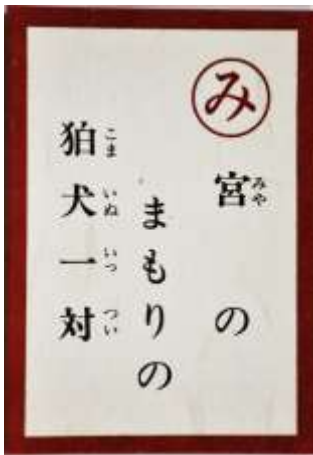 み
宮の
まもりの
狛犬一対
みや
こま
いぬ
いっ
つい